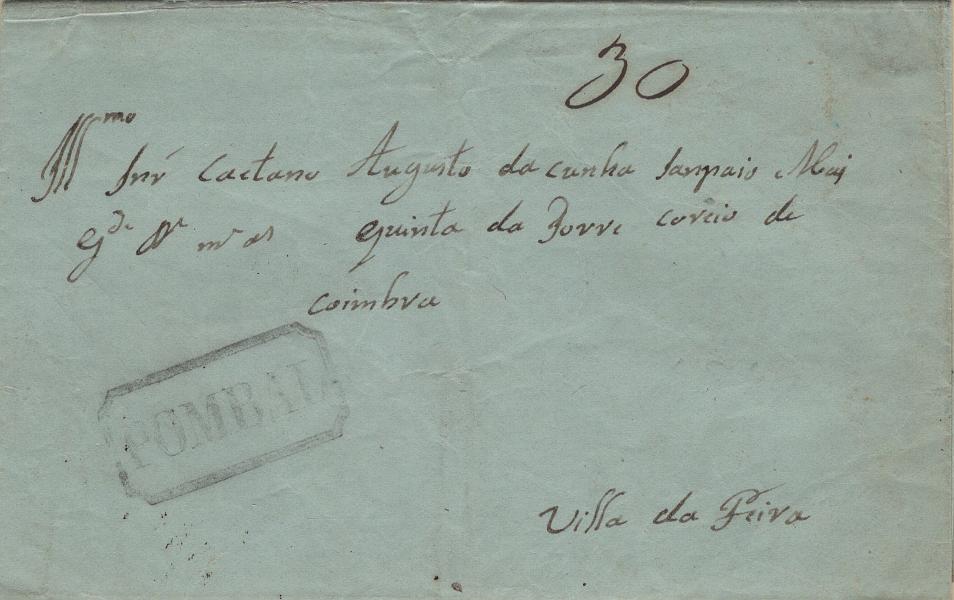 30
Illmo Snr Caetano Augusto da cunha Sanpaio Maj
gde Ns ms as quinta da Torre correio de
coimbra
POMBAL
Villa da Feira